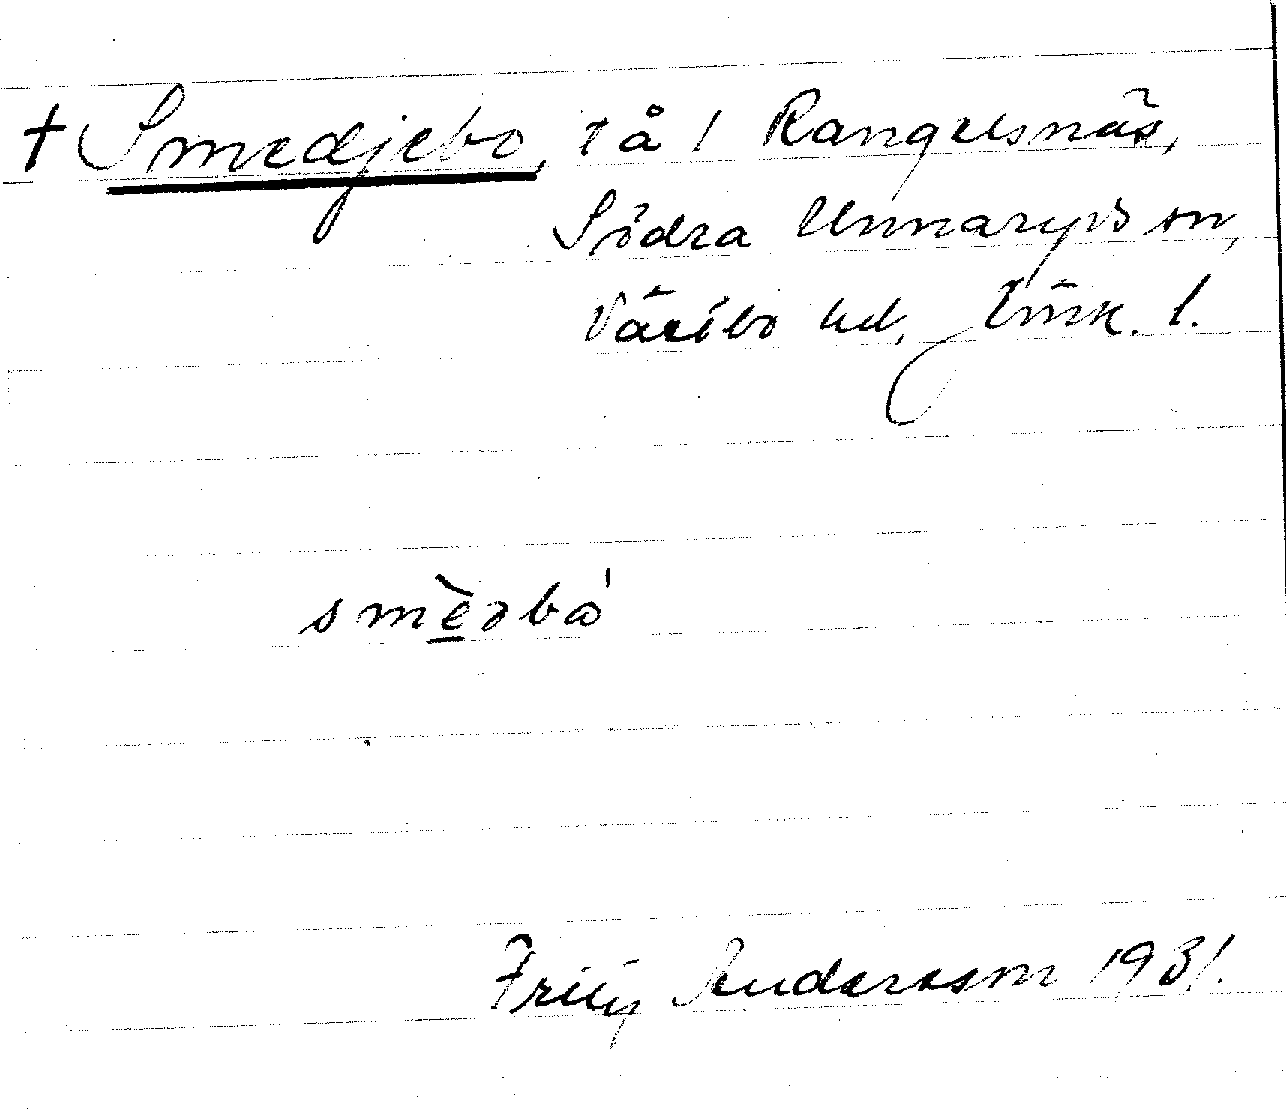 † Smedjebo, rå 1 Rangelsnäs,
Södra Unnaryds sn,
Västbo hd, Jönk. l.
smèəbó
Fritz Andersson 1931.